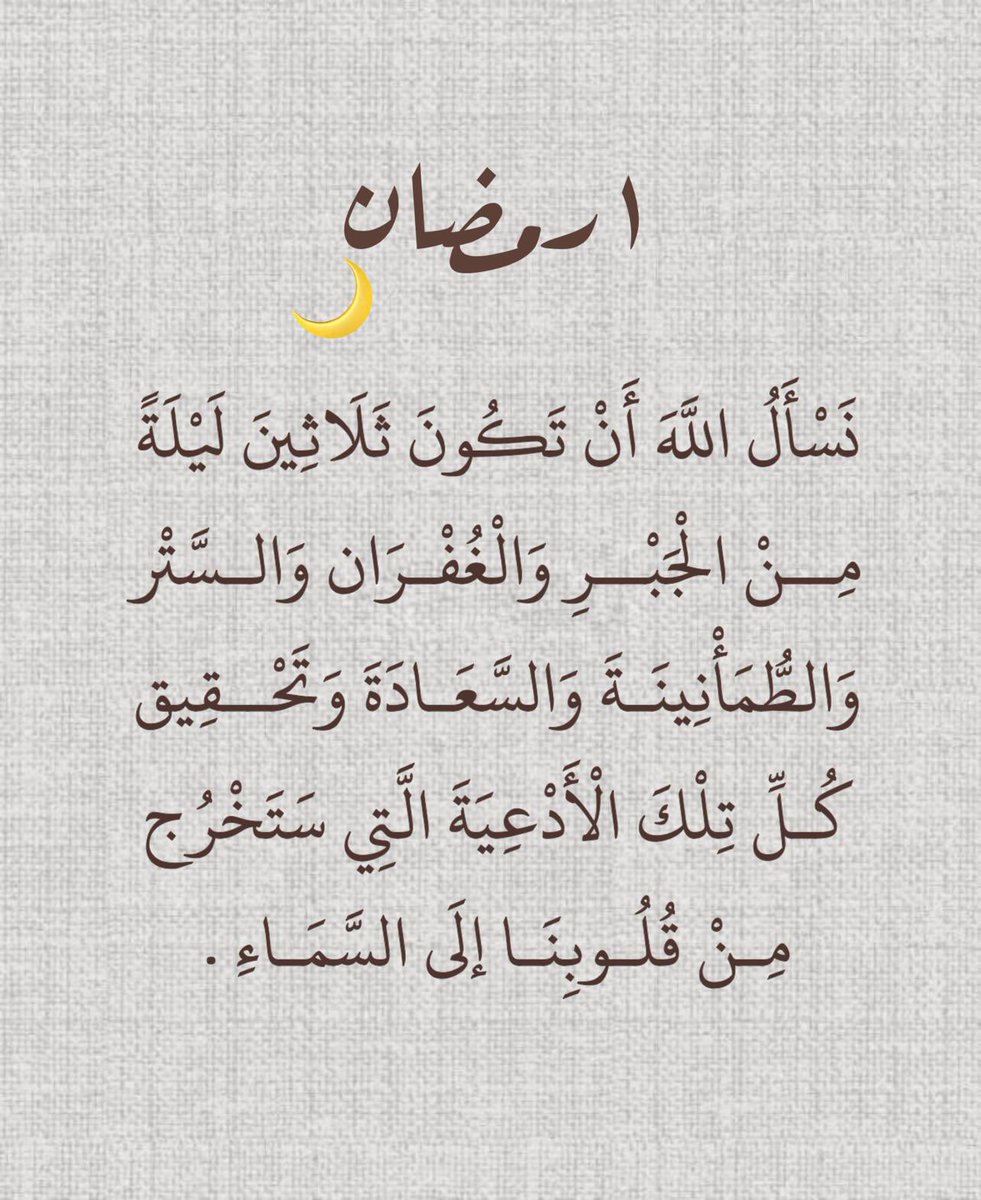 ١ رمضان
نَسْأَلُ اللَّهَ أَنْ تَكُونَ ثَلَاثِينَ لَيْلَةً
مِـــنْ الْجَبْـــرِ وَالْغُفْـرَان وَالــسَّتْر
وَالطُّمَأْنِينَـةَ وَالسَّعَـادَةَ وَتَحْـــقِيق
كُــلِّ تِلْكَ الْأَدْعِيَةَ الَّتِي سَتَخْرُج
مِـنْ قُلُـوبِنَـا إلَى السَّمَـاءِ .